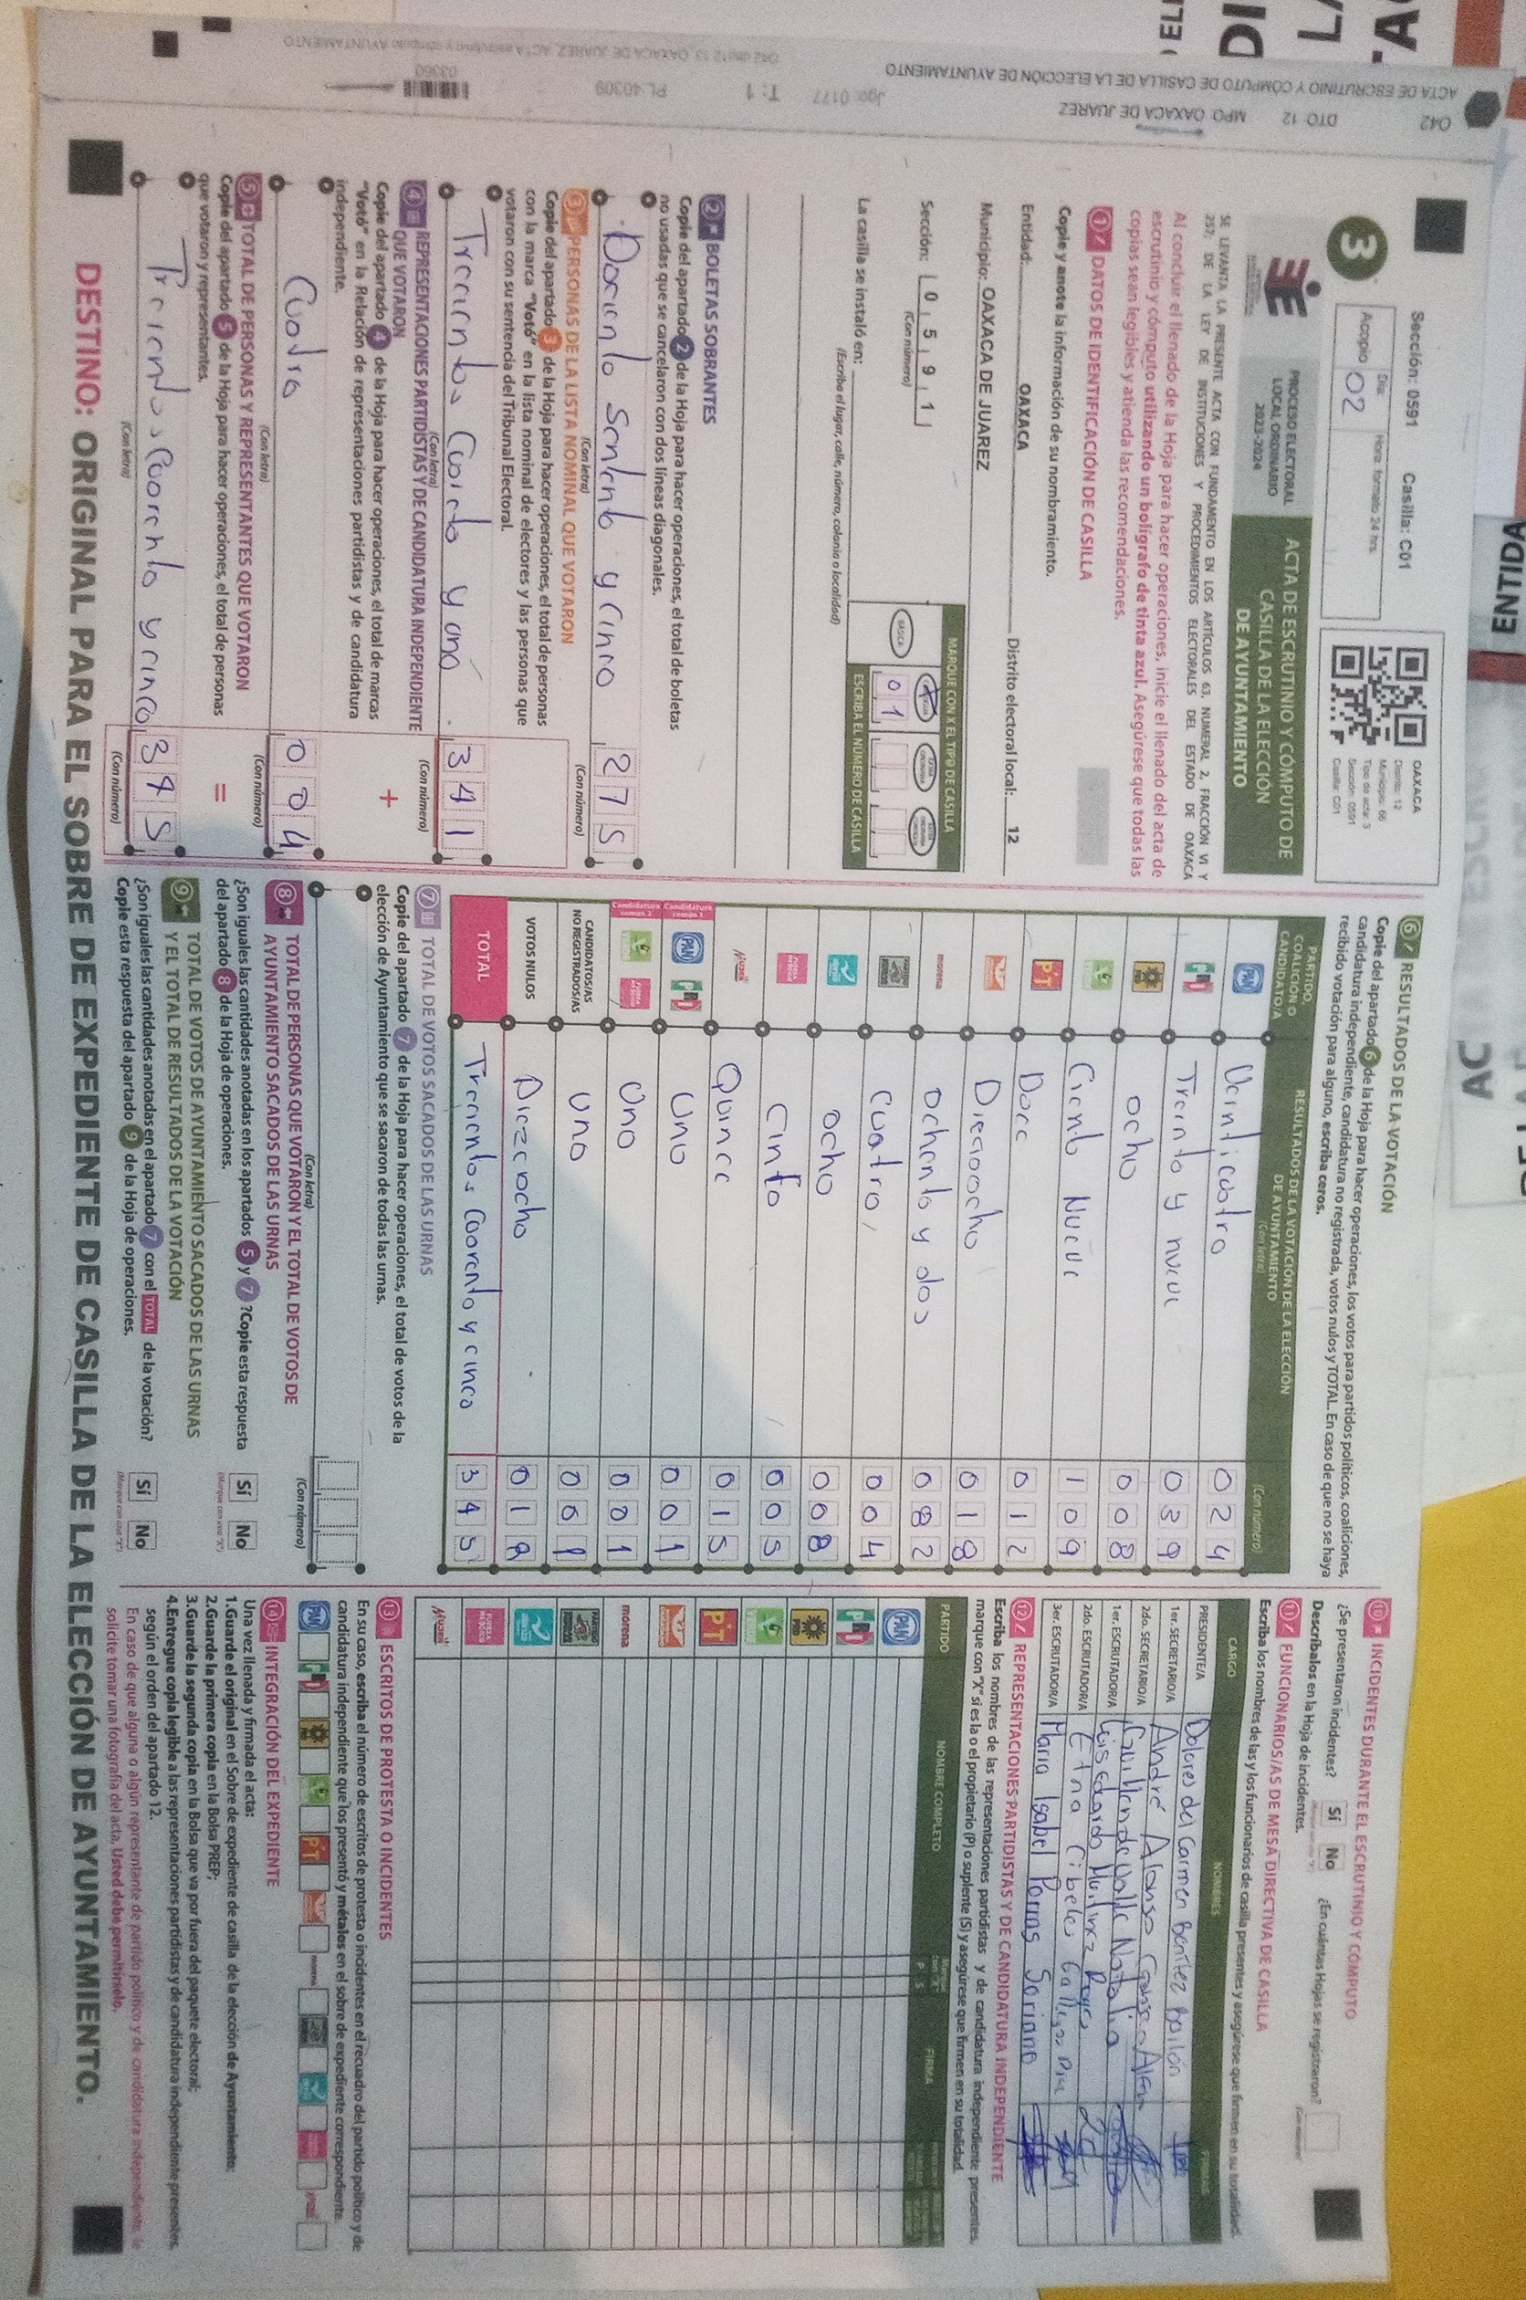 ENTIDA
AC
O42 DTO. 12 MPO. OAXACA DE JUAREZ Jgo: 0177 T: 1 PL 40309
ACTA DE ESCRUTINIO Y CÓMPUTO DE CASILLA DE LA ELECCIÓN DE AYUNTAMIENTO
03360
Sección: 0591 Casilla: C01
OAXACA
Distrito: 12
Municipio: 66
Tipo de acta: 3
Sección: 0591
Casilla: C01
3
Acopio
Día:
02
Hora: formato 24 hrs.
PROCESO ELECTORAL
LOCAL ORDINARIO
2023-2024
ACTA DE ESCRUTINIO Y CÓMPUTO DE
CASILLA DE LA ELECCIÓN
DE AYUNTAMIENTO
SE LEVANTA LA PRESENTE ACTA CON FUNDAMENTO EN LOS ARTÍCULOS 63, NUMERAL 2, FRACCIÓN VI Y
257; DE LA LEY DE INSTITUCIONES Y PROCEDIMIENTOS ELECTORALES DEL ESTADO DE OAXACA
Al concluir el llenado de la Hoja para hacer operaciones, inicie el llenado del acta de
escrutinio y cómputo utilizando un bolígrafo de tinta azul. Asegúrese que todas las
copias sean legibles y atienda las recomendaciones.
1 DATOS DE IDENTIFICACIÓN DE CASILLA
Copie y anote la información de su nombramiento.
Entidad: OAXACA Distrito electoral local: 12
Municipio: OAXACA DE JUAREZ
Sección: 0 5 9 1
(Con número)
MARQUE CON X EL TIPO DE CASILLA
BÁSICA
ESCRIBA EL NÚMERO DE CASILLA
0 1
La casilla se instaló en:
(Escriba el lugar, calle, número, colonia o localidad)
2 BOLETAS SOBRANTES
Copie del apartado 2 de la Hoja para hacer operaciones, el total de boletas
no usadas que se cancelaron con dos líneas diagonales.
Dociento setenta y cinco 2 7 5
(Con letra) (Con número)
3 PERSONAS DE LA LISTA NOMINAL QUE VOTARON
Copie del apartado 3 de la Hoja para hacer operaciones, el total de personas
con la marca "Votó" en la lista nominal de electores y las personas que
votaron con su sentencia del Tribunal Electoral.
3 4 1
(Con letra) (Con número)
4 REPRESENTACIONES PARTIDISTAS Y DE CANDIDATURA INDEPENDIENTE
QUE VOTARON
Copie del apartado 4 de la Hoja para hacer operaciones, el total de marcas
"Votó" en la Relación de representaciones partidistas y de candidatura
independiente.
+
Cuatro 0 0 4
(Con letra) (Con número)
5 TOTAL DE PERSONAS Y REPRESENTANTES QUE VOTARON
Copie del apartado 5 de la Hoja para hacer operaciones, el total de personas
que votaron y representantes.
=
Trecientos Coarenta y cinco 3 4 5
(Con letra) (Con número)
6 RESULTADOS DE LA VOTACIÓN
Copie del apartado 6 de la Hoja para hacer operaciones, los votos para partidos políticos, coaliciones,
candidatura independiente, candidatura no registrada, votos nulos y TOTAL. En caso de que no se haya
recibido votación para alguno, escriba ceros.
PARTIDO,
COALICIÓN O
CANDIDATO/A
RESULTADOS DE LA VOTACIÓN DE LA ELECCIÓN
DE AYUNTAMIENTO
(Con letra)
(Con número)
PAN Veinticoatro 0 2 4
PRI Treinta y nueve 0 3 9
ocho 0 0 8
Ciento Nueve 1 0 9
PT Doce 0 1 2
Dieciocho 0 1 8
morena ochenta y dos 0 8 2
cuatro 0 0 4
ocho 0 0 8
Cinco 0 0 5
Quince 0 1 5
Candidatura común 1 PAN PRI Uno 0 0 1
Candidatura común 2 Uno 0 0 1
CANDIDATOS/AS
NO REGISTRADOS/AS uno 0 0 1
VOTOS NULOS Diezcocho 0 1 8
TOTAL Trecientos Coarenta y cinco 3 4 5
7 TOTAL DE VOTOS SACADOS DE LAS URNAS
Copie del apartado 7 de la Hoja para hacer operaciones, el total de votos de la
elección de Ayuntamiento que se sacaron de todas las urnas.
(Con letra) (Con número)
8 TOTAL DE PERSONAS QUE VOTARON Y EL TOTAL DE VOTOS DE
AYUNTAMIENTO SACADOS DE LAS URNAS
¿Son iguales las cantidades anotadas en los apartados 5 y 7 ?Copie esta respuesta
del apartado 8 de la Hoja de operaciones.
Sí No
9 TOTAL DE VOTOS DE AYUNTAMIENTO SACADOS DE LAS URNAS
Y EL TOTAL DE RESULTADOS DE LA VOTACIÓN
¿Son iguales las cantidades anotadas en el apartado 7 con el TOTAL de la votación?
Copie esta respuesta del apartado 9 de la Hoja de operaciones.
Sí No
10 INCIDENTES DURANTE EL ESCRUTINIO Y CÓMPUTO
¿Se presentaron incidentes? Sí No ¿En cuántas Hojas se registraron?
Descríbalos en la Hoja de incidentes.
11 FUNCIONARIOS/AS DE MESA DIRECTIVA DE CASILLA
Escriba los nombres de las y los funcionarios de casilla presentes y asegúrese que firmen en su totalidad.
CARGO NOMBRES FIRMAS
PRESIDENTE/A Dolores del Carmen Benítez Bailón
1er. SECRETARIO/A André Alonso
2do. SECRETARIO/A Natalia
1er. ESCRUTADOR/A Luis Edgardo
2do. ESCRUTADOR/A Etna Cibeles
3er. ESCRUTADOR/A María Isabel Porras Soriano
12 REPRESENTACIONES PARTIDISTAS Y DE CANDIDATURA INDEPENDIENTE
Escriba los nombres de las representaciones partidistas y de candidatura independiente presentes,
marque con "X" si es la o el propietario (P) o suplente (S) y asegúrese que firmen en su totalidad.
PARTIDO NOMBRE COMPLETO P S FIRMA
PAN
PRI
PRD
PT
morena
13 ESCRITOS DE PROTESTA O INCIDENTES
En su caso, escriba el número de escritos de protesta o incidentes en el recuadro del partido político y de
candidatura independiente que los presentó y métalos en el sobre de expediente correspondiente.
PAN PRI PT morena
14 INTEGRACIÓN DEL EXPEDIENTE
Una vez llenada y firmada el acta:
1.Guarde el original en el Sobre de expediente de casilla de la elección de Ayuntamiento;
2.Guarde la primera copia en la Bolsa PREP;
3.Guarde la segunda copia en la Bolsa que va por fuera del paquete electoral;
4.Entregue copia legible a las representaciones partidistas y de candidatura independiente presentes,
según el orden del apartado 12.
En caso de que alguna o algún representante de partido político y de candidatura independiente, le
solicite tomar una fotografía del acta, Usted debe permitírselo.
DESTINO: ORIGINAL PARA EL SOBRE DE EXPEDIENTE DE CASILLA DE LA ELECCIÓN DE AYUNTAMIENTO.